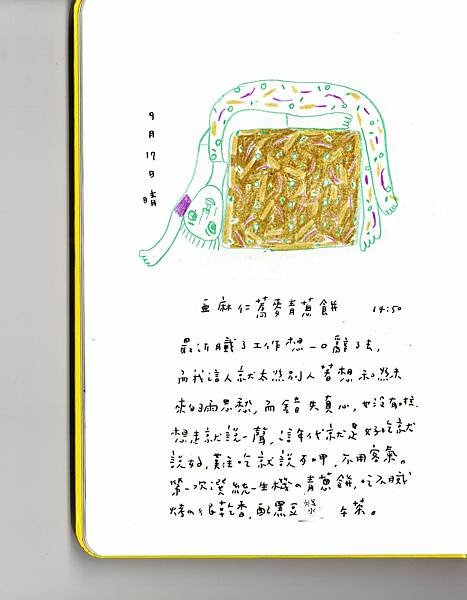 9月17日晴
亞麻仁蕎麥青蔥餅 14:50
最近職了工作想一口辭了去,
而我這人就太為別人著想
來的兩思愁,而錯失真心,也沒有

想走就說一聲,這年代就是好吃就
說好,難吃就說不呷,不用客氣。
第一次選統一生機の青蔥餅,吃不膩
烤の很乾香,配黑豆 午茶。